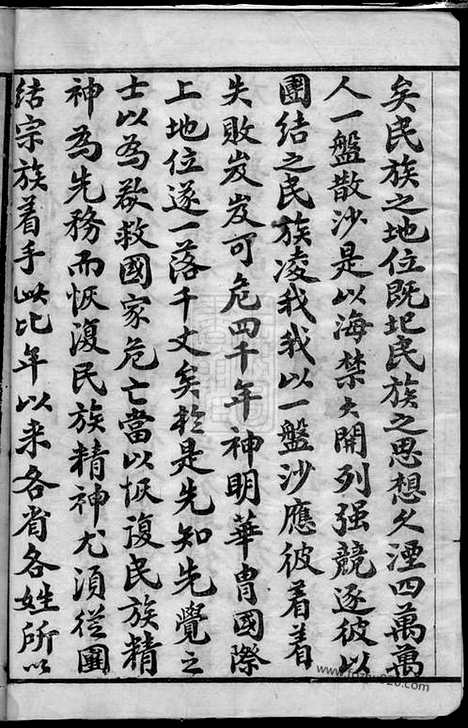 矣民族之地位既圮民族之思想久湮四萬萬
人一盤散沙是以海禁大開列强競逐彼以
團结之民族凌我我以一盤沙應彼着着
失敗岌岌可危四千年神明華胄國際
上地位遂一落千丈矣於是先知先覺之
士以為欲救國家危亡當以恢復民族精
神為先務而恢復民族精神尤須從團
结宗族着手此比年以来各省各姓所以